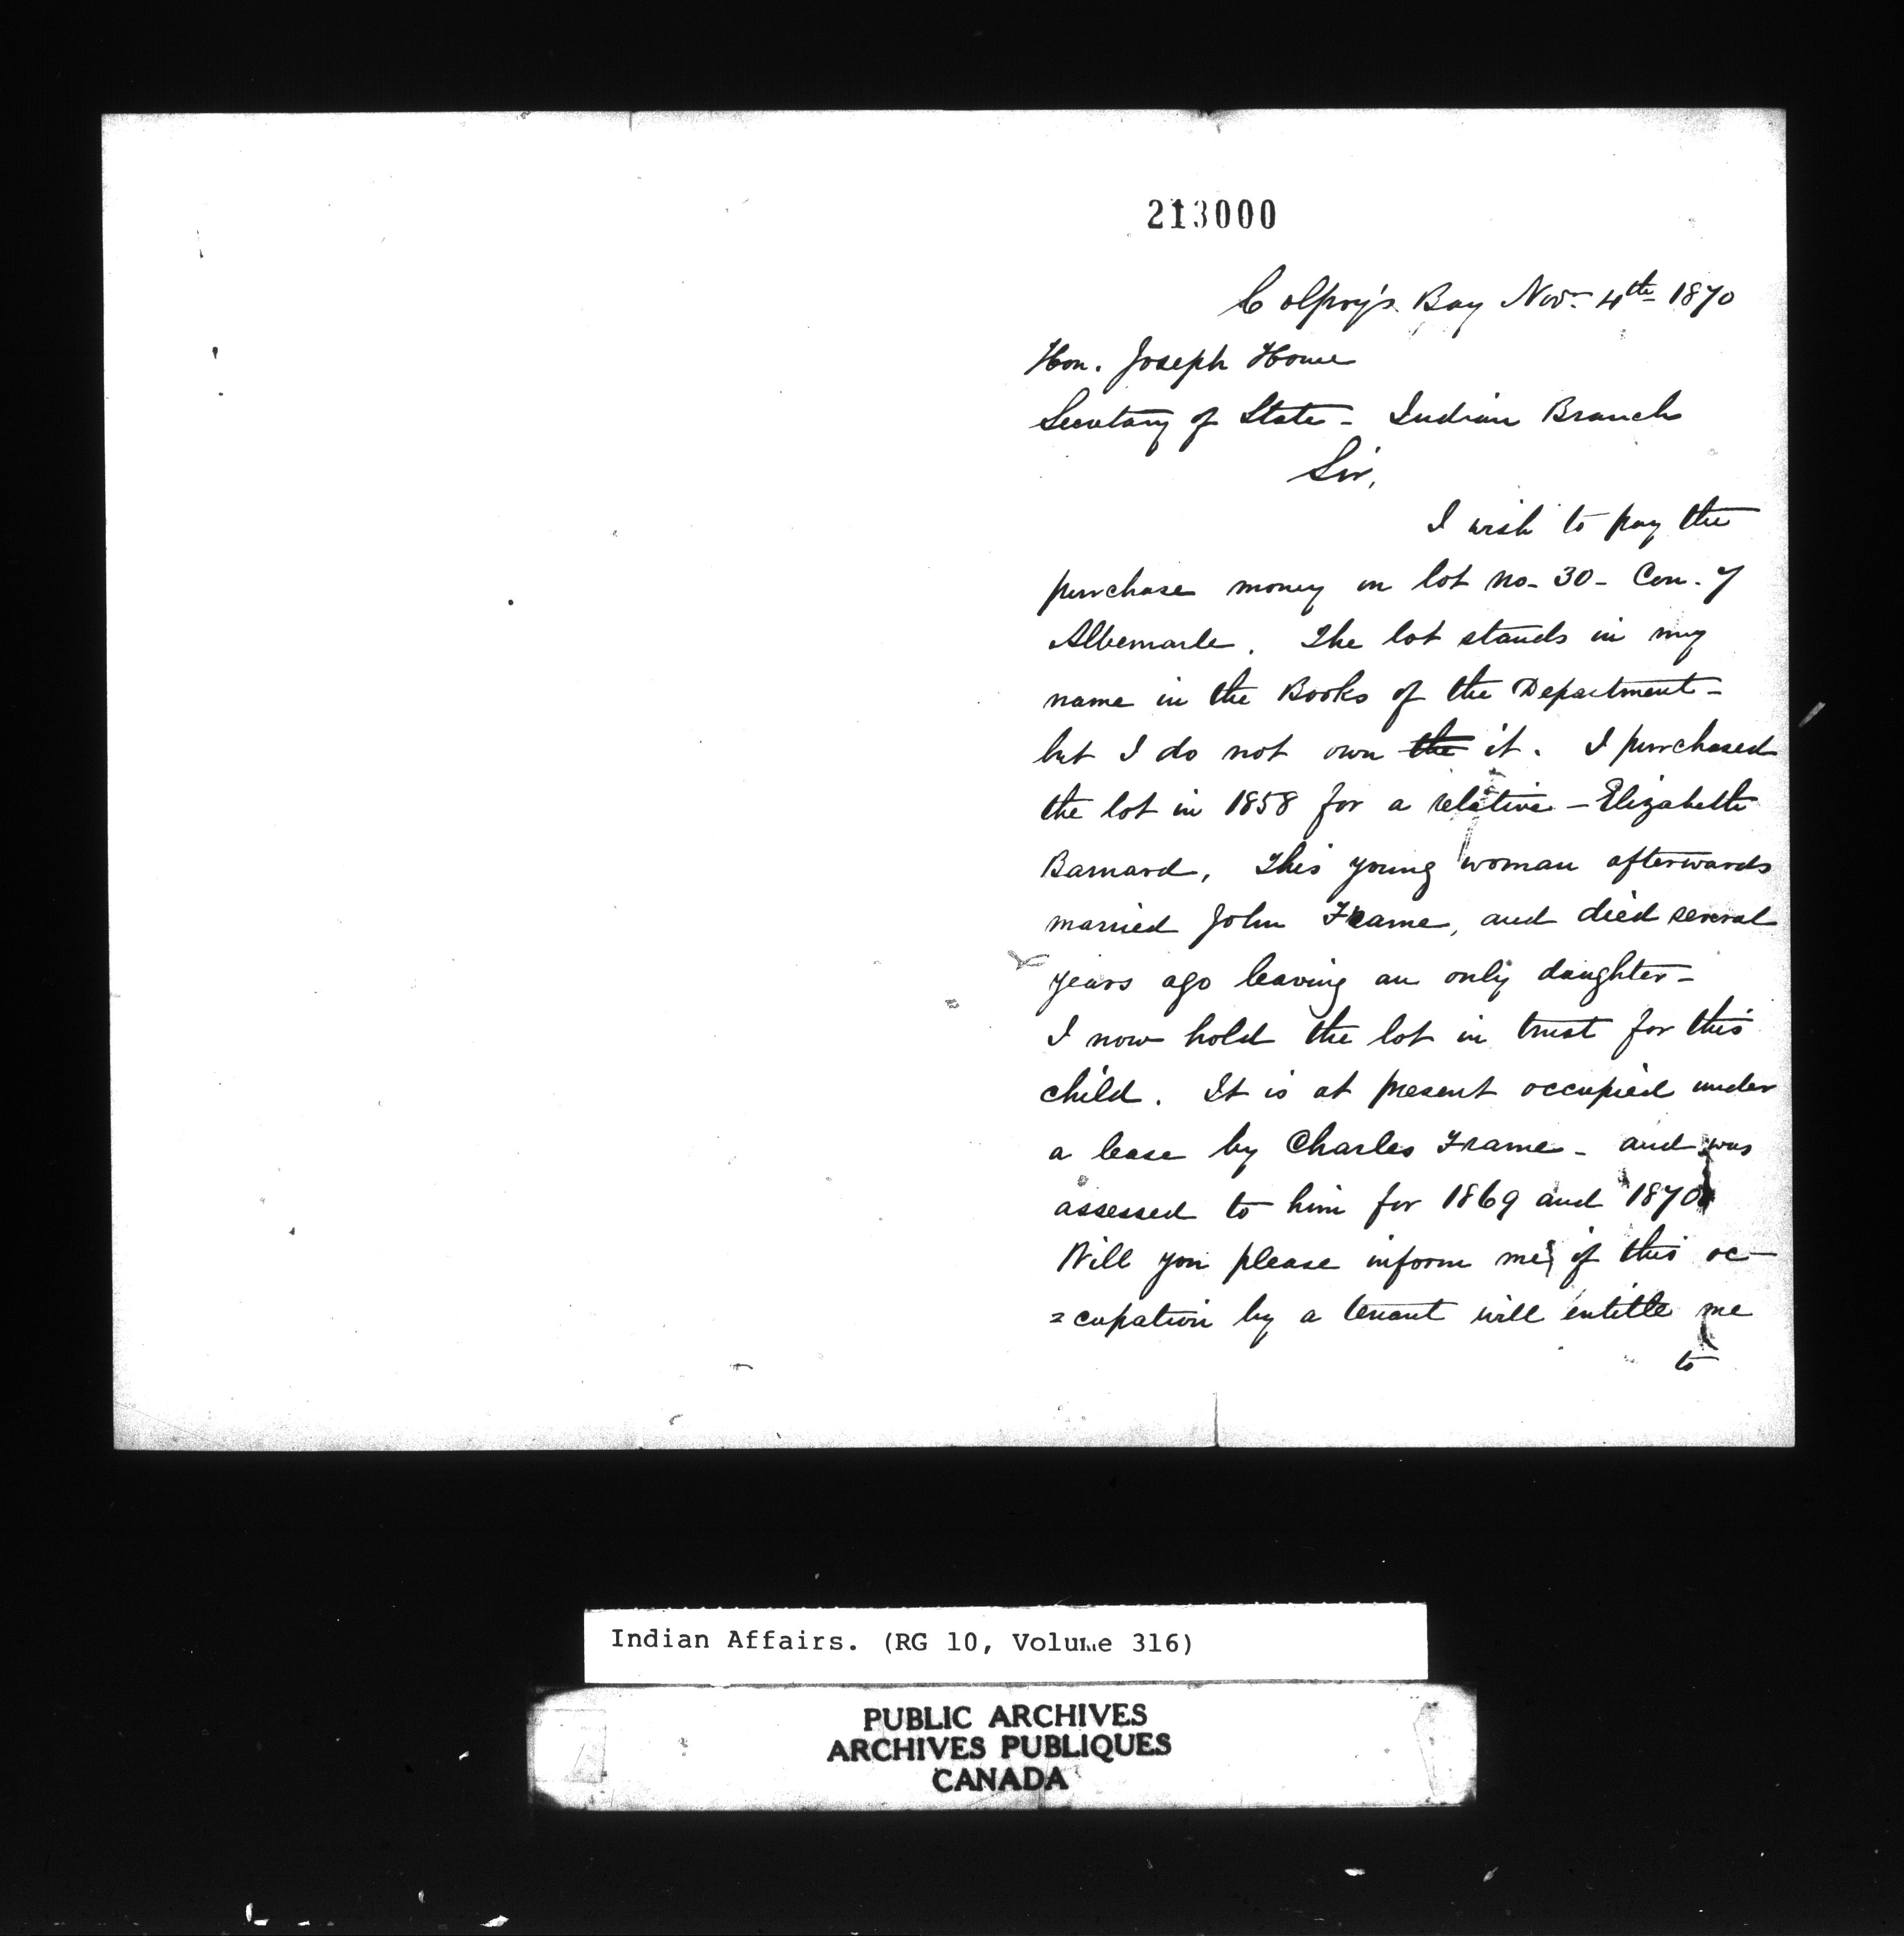 213000
Colpoy's Bay Nov. 4th 1870
Hon. Joseph Howe
Secretary of State - Indian Branch
Sir,
I wish to pay the
purchase money on lot no. 30 - Con. 7
Albemarle. The lot stands in my
name in the Books of the Department -
but I do not own the it. I purchased
the lot in 1858 for a relative - Elizabeth
Barnard, This young woman afterwards
married John Frame, and died several
years ago leaving an only daughter -
I now hold the lot in trust for this
child. It is at present occupied under
a lease by Charles Frame - and was
assessed to him for 1869 and 1870
Will you please inform me, if this oc-
=cupation by a tenant will entitle me
to
Indian Affairs. (RG 10, Volume 316)
PUBLIC ARCHIVES
ARCHIVES PUBLIQUES
CANADA